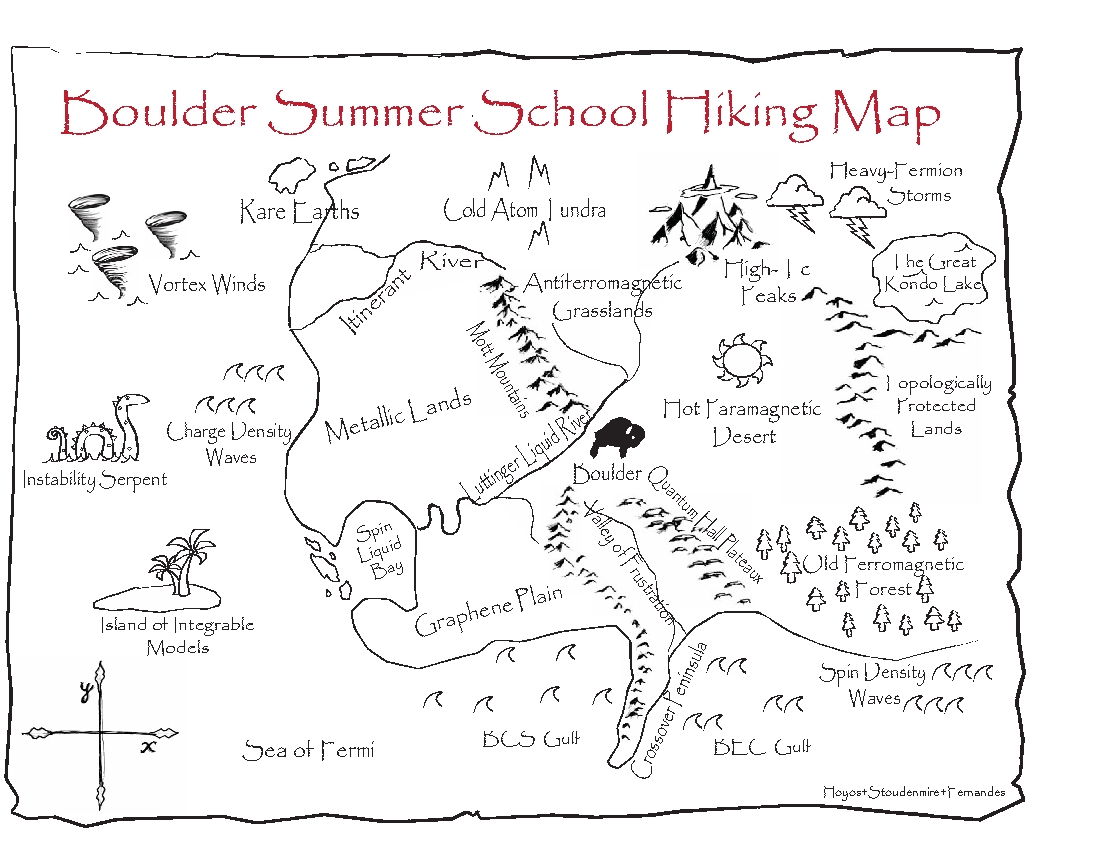 Boulder Summer School Hiking Map
Heavy-Fermion
Storms
Rare Earths
Cold Atom Tundra
Vortex Winds
Itinerant River
Antiferromagnetic
Grasslands
High-Tc
Peaks
The Great
Kondo Lake
Mott Mountains
Metallic Lands
Charge Density
Waves
Instability Serpent
Luttinger Liquid River
Hot Paramagnetic
Desert
Topologically
Protected
Lands
Boulder
Quantum Hall Plateaux
Spin
Liquid
Bay
Valley of Frustration
Old Ferromagnetic
Forest
Graphene Plain
Island of Integrable
Models
Spin Density
Waves
Crossover Peninsula
y
x
Sea of Fermi
BCS Gulf
BEC Gulf
Hoyos+Stoudenmire+Fernandes